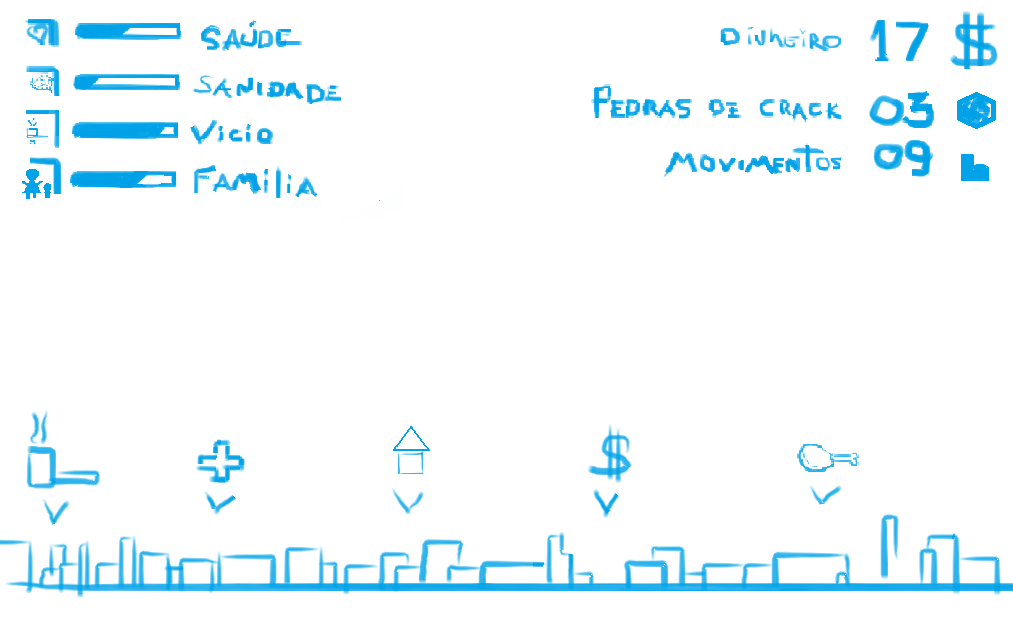 SAÚDE
SANIDADE
Vicio
FAMíliA
DiNHEIRO 17 $
PEDRAS DE CRACK 03
MOVIMENTOS 09
$